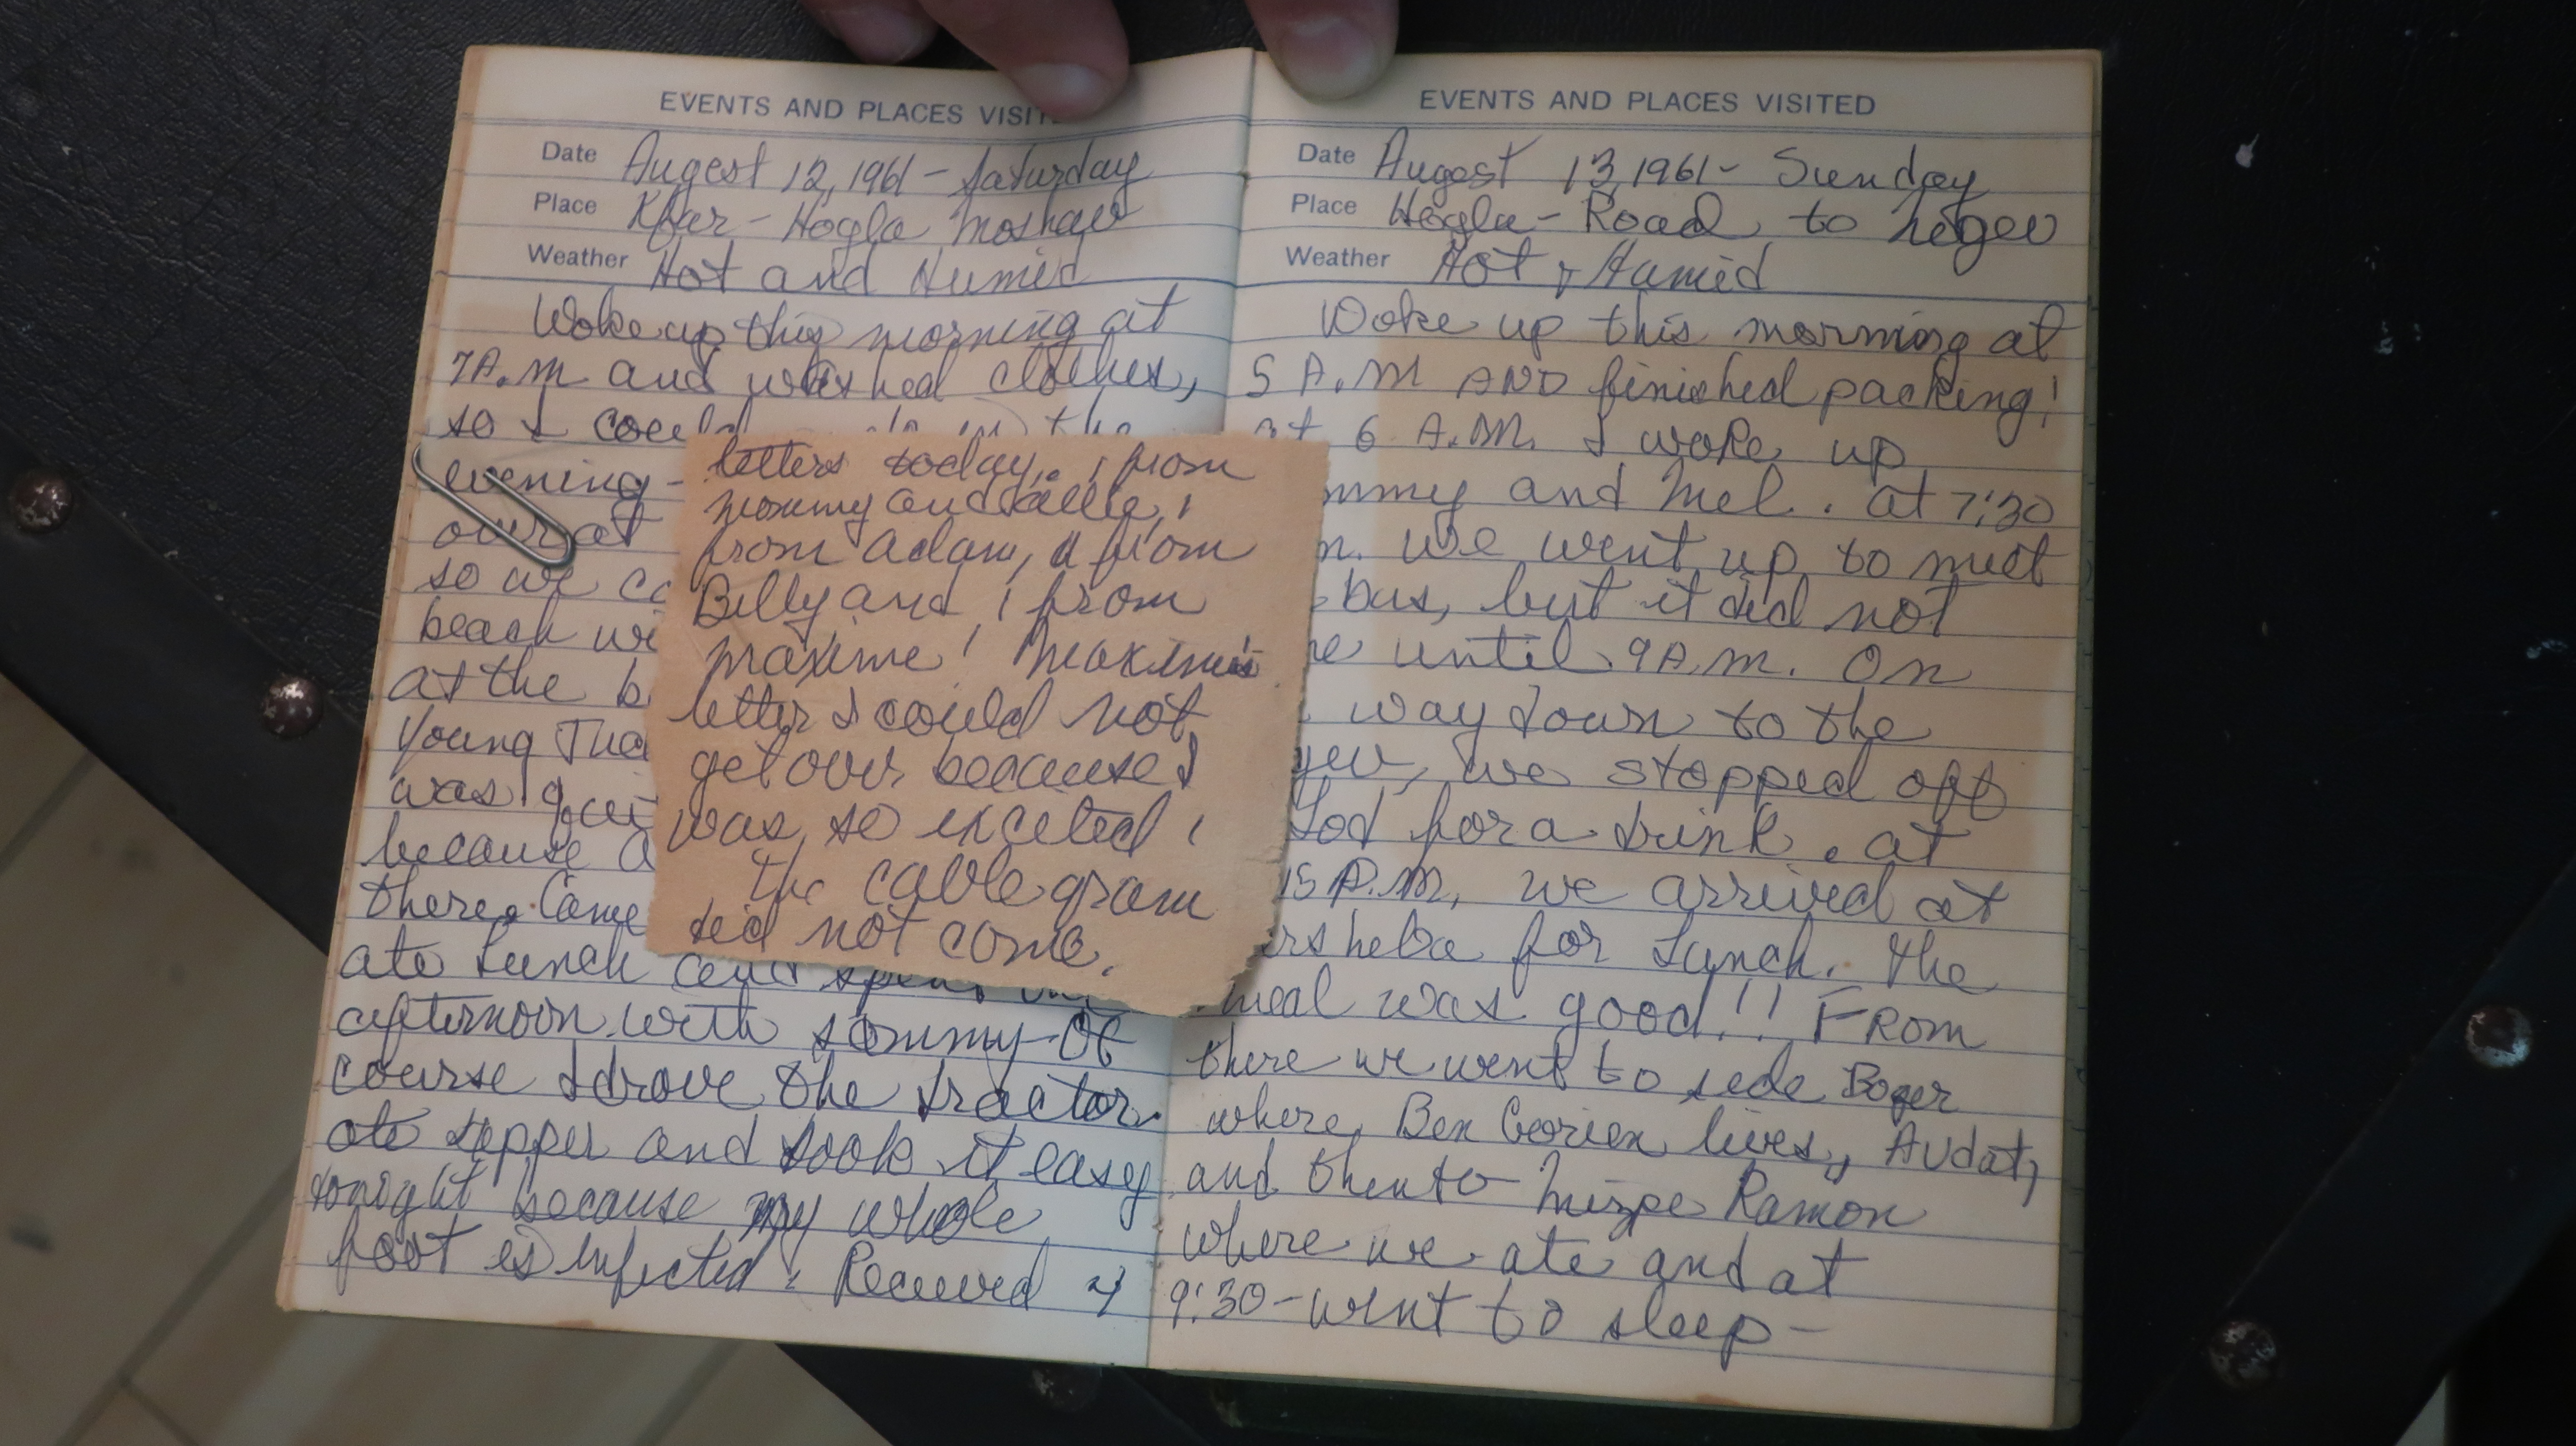 EVENTS AND PLACES VISIT
Date Augest 12, 1961 - Saturday
Place Kfar - Hogla Moshav
Weather Hot and Humid
Woke up this morning at
7 A.M and washed clothes,
so I could
evening -
over at
so we
beach
at the
Young
was
because
there. Came
ate lunch and
afternoon with Sommy. Of
course I drove the tractor.
ate supper and took it easy
tonight because my whole
foot is infected. Received 4
letters today. 1 from
mommy and allie, 1
from adam, 1 from
Billy and 1 from
maxine! Maxine's
letter I could not
get over because I
was so excited!
The cablegram
did not come.
EVENTS AND PLACES VISITED
Date Augest 13, 1961 - Sunday
Place Hogla - Road to Negev
Weather Hot & Humid
Woke up this morning at
5 A.M AND finished packing!
at 6 A.M. I woke up
mmy and Mel. at 7:30
we went up to meet
bus, but it did not
until 9 A.M. On
way down to the
gev, we stopped off
Lod for a drink. at
15 P.M, we arrived at
ersheba for Lunch. The
meal was good!! FROM
there we went to sede Boger
where Ben Gorien lives, Avdat,
and then to Mizpe Ramon
where we ate and at
9:30 - went to sleep -